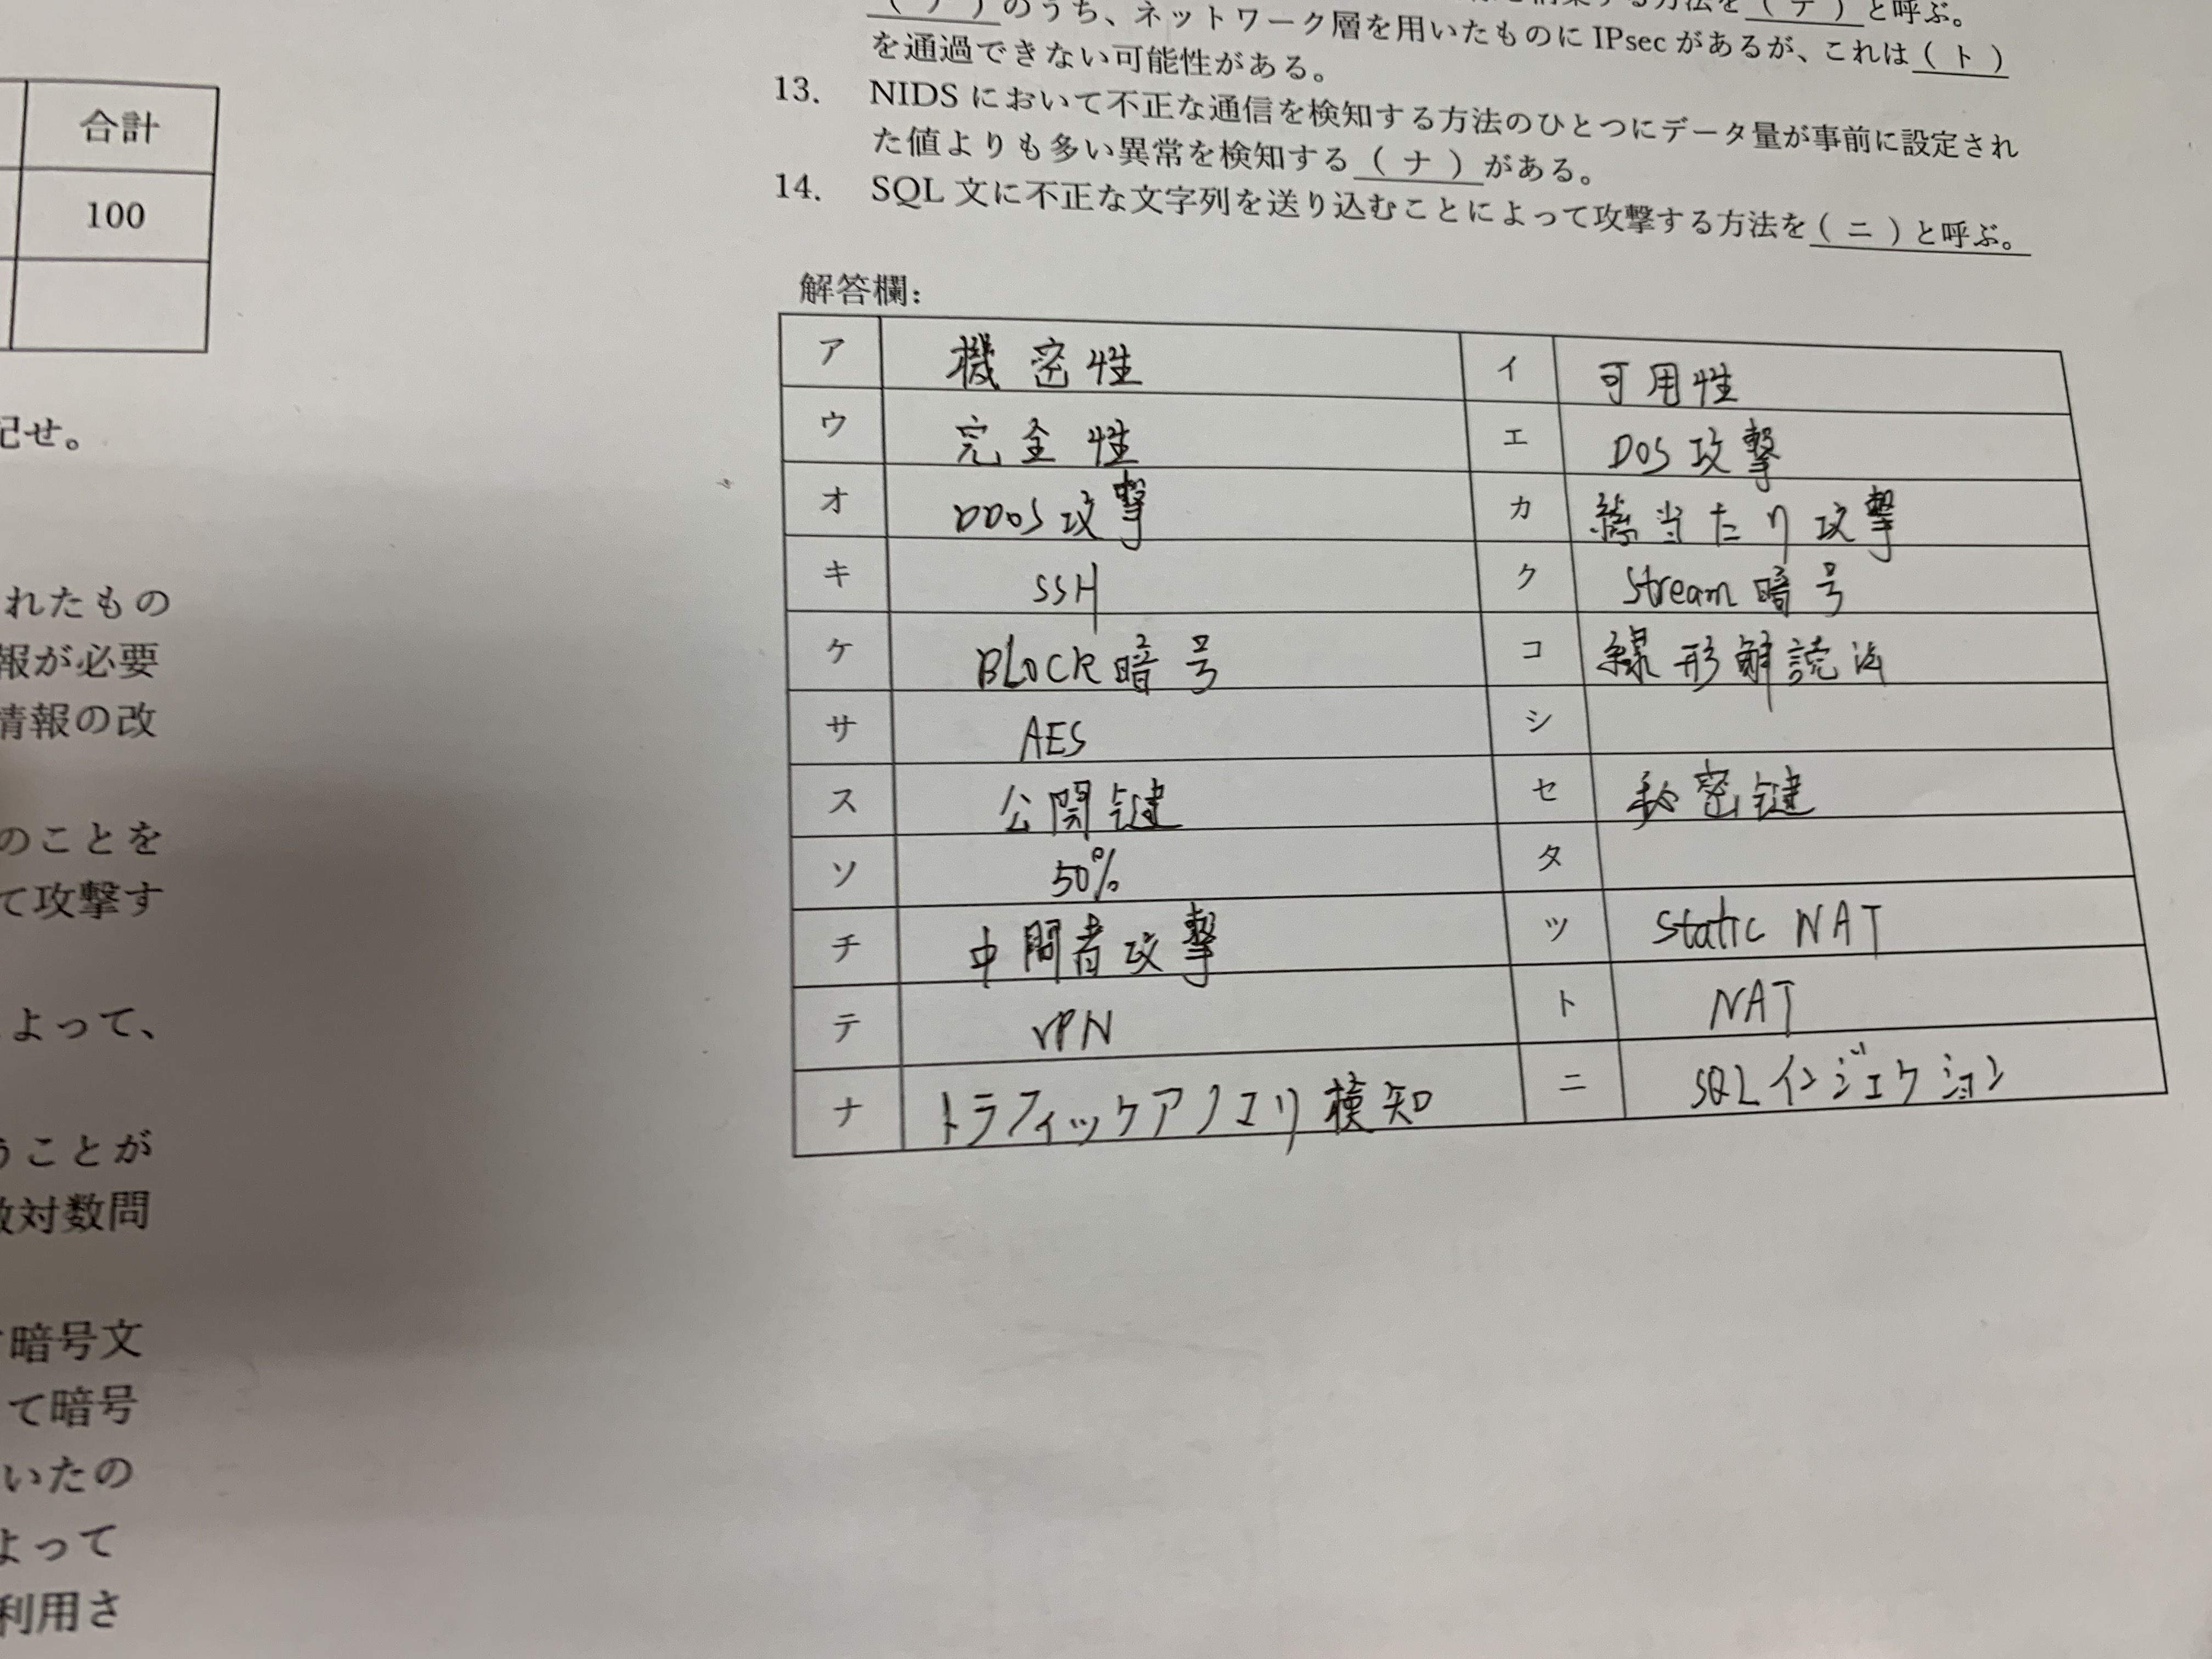 合計
100
記せ。
れたもの
報が必要
情報の改
のことを
て攻撃す
よって、
うことが
数対数問
暗号文
て暗号
いたの
よって
利用さ
のうち、ネットワーク層を用いたものに IPsec があるが、これは(ト)
を通過できない可能性がある。
13. NIDS において不正な通信を検知する方法のひとつにデータ量が事前に設定され
た値よりも多い異常を検知する(ナ)がある。
14. SQL 文に不正な文字列を送り込むことによって攻撃する方法を(ニ)と呼ぶ。
解答欄:
ア 機密性 イ 可用性
ウ 完全性 エ DOS攻撃
オ DDOS攻撃 カ 総当たり攻撃
キ SSH ク Stream暗号
ケ BLOCK暗号 コ 線形解読法
サ AES シ
ス 公開鍵 セ 秘密鍵
ソ 50% タ
チ 中間者攻撃 ツ Static NAT
テ VPN ト NAT
ナ トラフィックアノマリ検知 ニ SQLインジェクション